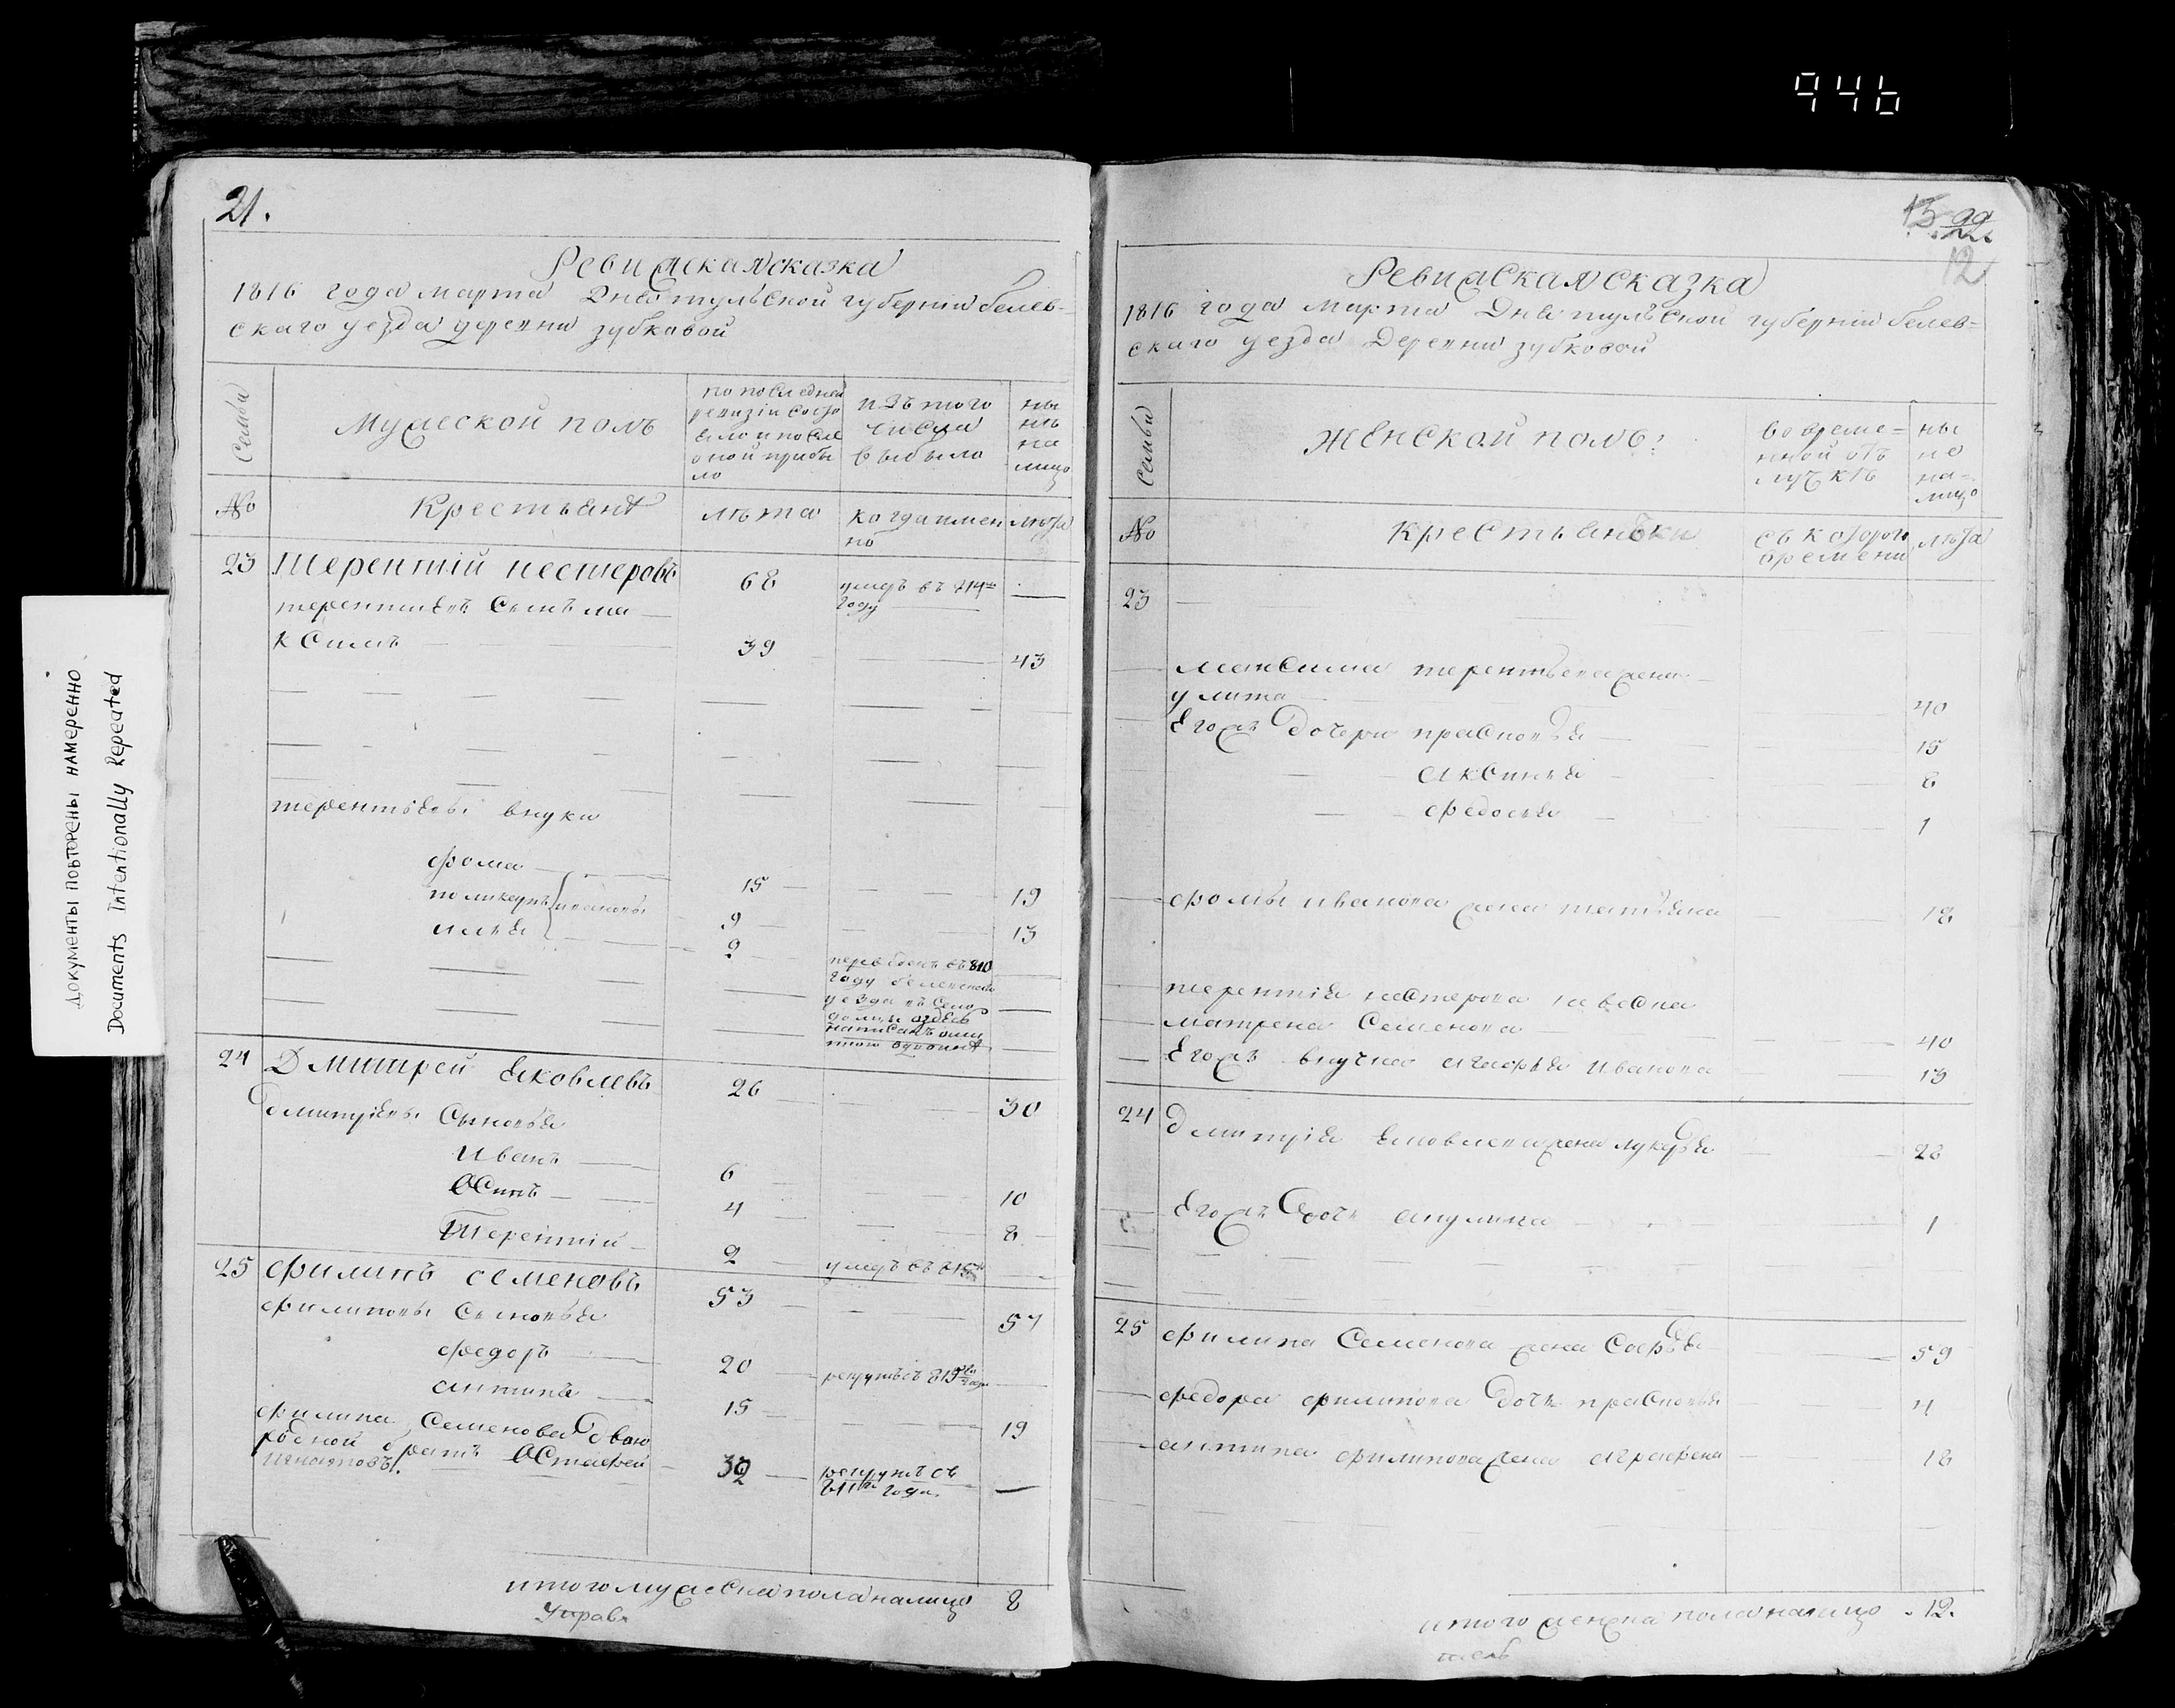 946
документы повторены намеренно
Documents Intentionally Repeated
21.
Ревижская сказка
1816 года марта Дня тульской губернии белев-
скаго уезда деревни зубковой
Семьи
Мужеской полъ
по последней
ревизіи состо
яло и после
оной прибы
ло
изъ того
числа
выбыло
ны
нѣ
на
лицо
№
Крестьяня
лѣта
когда имен
но
лѣта
23 Терентій нестеровъ 68 умеръ въ 814м
году
терентіевъ сынъ ма
ксимъ 39 43
терентьевы внуки
фома 15 19
поликарпъ ивановы 9 13
илья 2 переведенъ въ 810
году белевскаго
уезда въ село
24 Дмитрей яковлевъ 26 30
дмитріевы Сыновья
иванъ 6 10
осипъ 4 8
Терентій 2 умеръ въ 815м
25 филипъ семеновъ 53 57
филиповы Сыновья
федоръ 20 рекрутъ съ 813го года
антипъ 15 19
филипа семенова двою
родной братъ Остафей
игнатовъ. 32 рекрутъ съ
811го года
итого мужеска пола налицо 8
Управи
15 22.
12
Ревижская сказка
1816 года марта Дня тульской губерніи белев=
скаго уезда Деревни зубковой
Семьи
Женской полъ:
во време=
нной отъ
лучкѣ
ны
не
на=
лицо
№
Крестьянъки
съ котораго
времени
лѣта
23
максима терентьева жена
улита 40
Егожъ дочери прасковья 15
аксинья 8
федосья 1
фомы иванова жена татьяна 18
терентія нестерова невеска
матрена Семенова 40
Егожъ внучка агафья иванова 13
24 дмитрія яковлева жена лукерья 28
Егожъ дочь акулина 1
25 филипа Семенова жена Софья 59
федора филипова дочь прасковья 4
антипа филипова жена аграфена 18
итого женска пола налицо .12.
тель